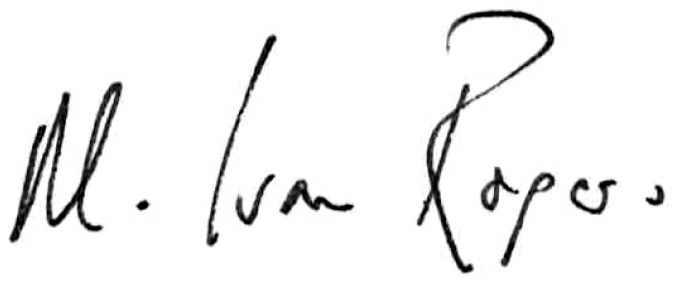 M. Ivan Rogers